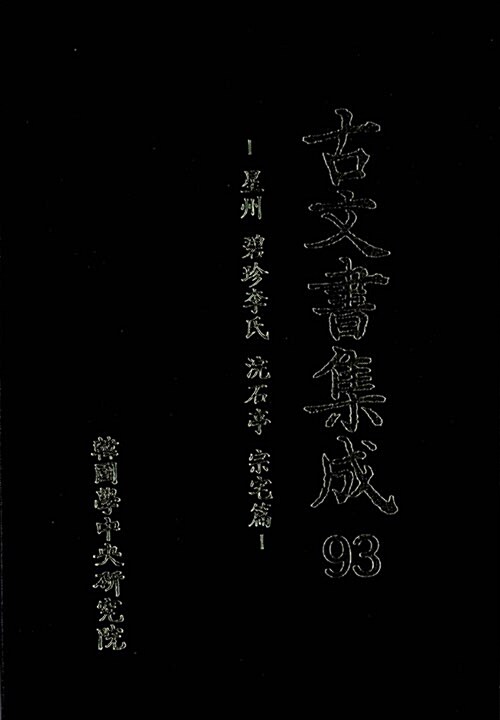 古文書集成 93
- 星州 碧珍李氏 浣石亭 宗宅篇 -
韓國學中央研究院